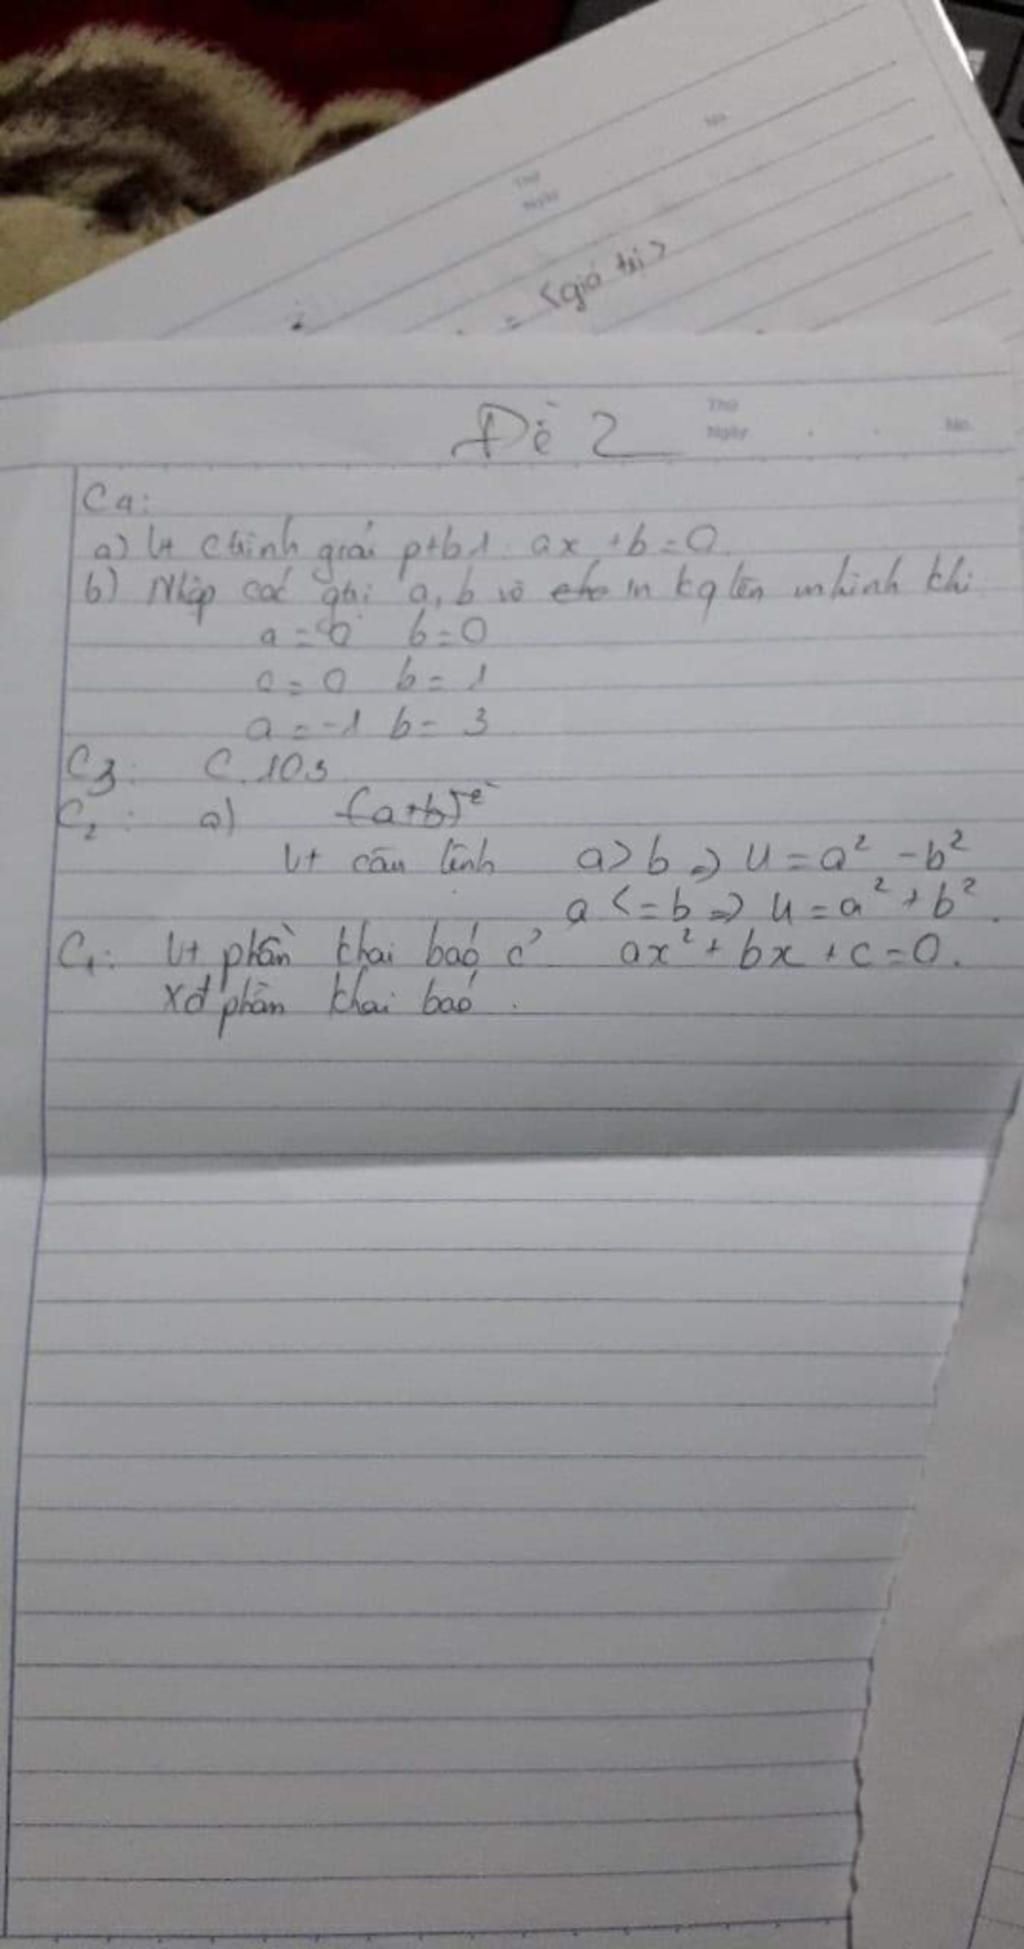 Thứ
Ngày
No.
= <giá trị>
Đề 2
Thứ
Ngày
No.
C4:
a) Vt ctrình giải ptb1 ax + b = 0
b) Nhập các gtri a, b và in kq lên mhình khi
a = 0 b = 0
a = 0 b = 1
a = -1 b = 3
C3: C 103
C2: a) (a+b)
Vt câu lệnh a > b => U = a² - b²
a <= b => U = a² + b².
C1: Vt phần khai báo c² ax² + bx + c = 0.
Xđ phần khai báo.